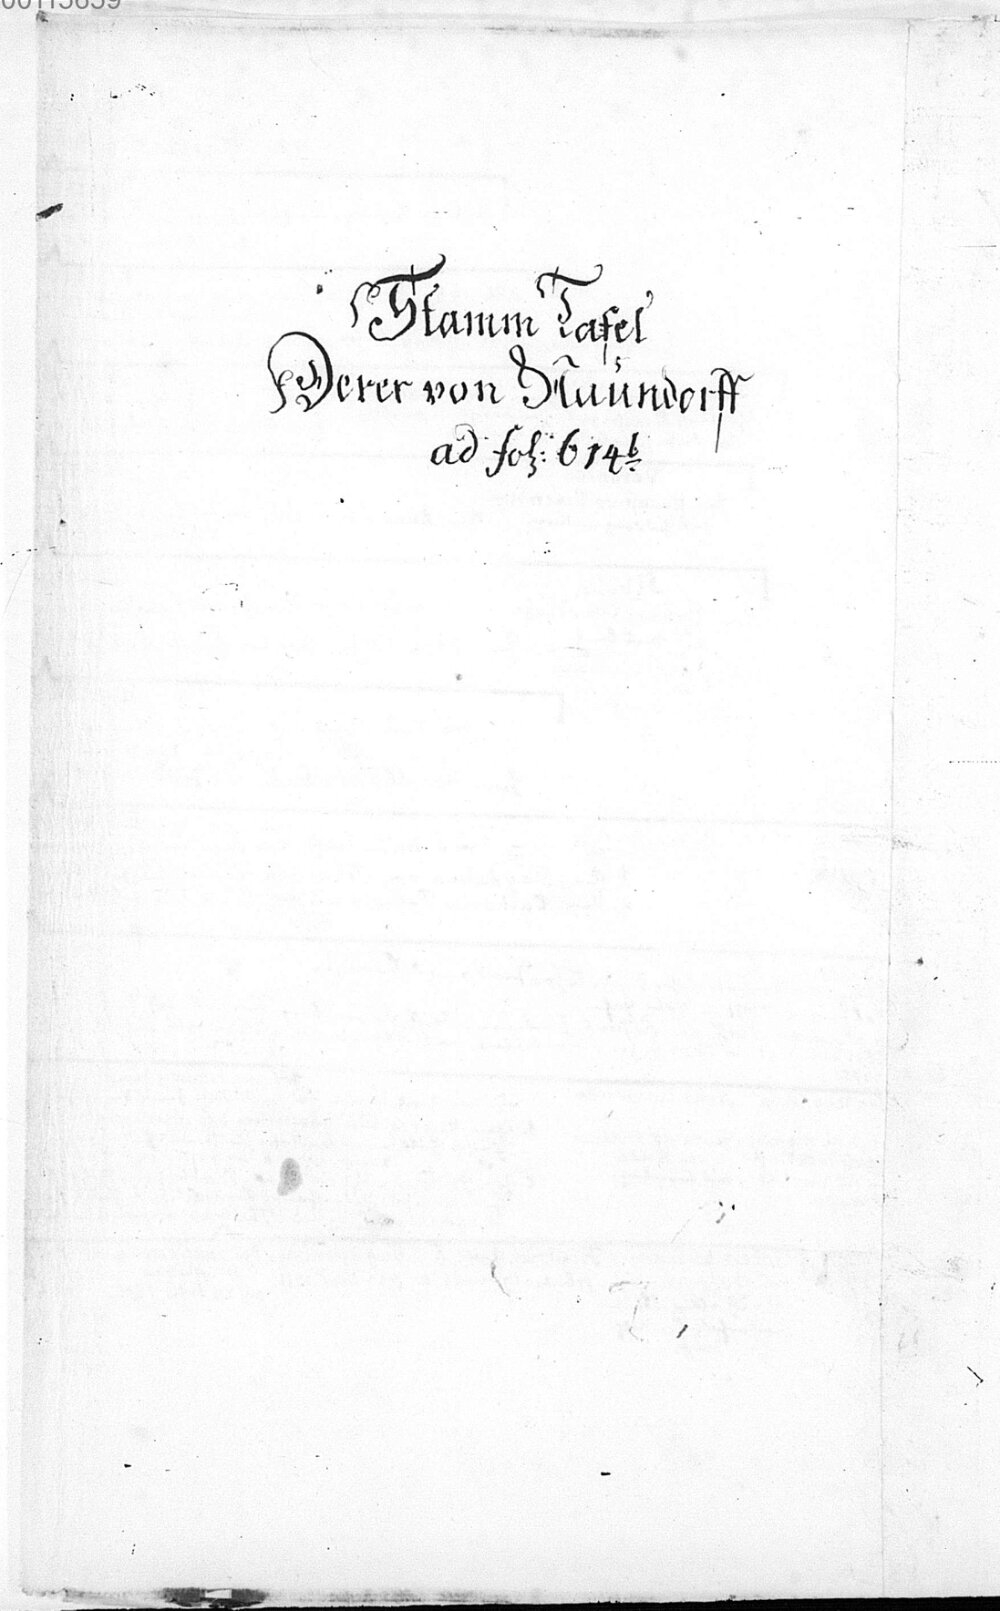 00113659
Stamm Tafel
Derer von Naundorff
ad fol: 614b